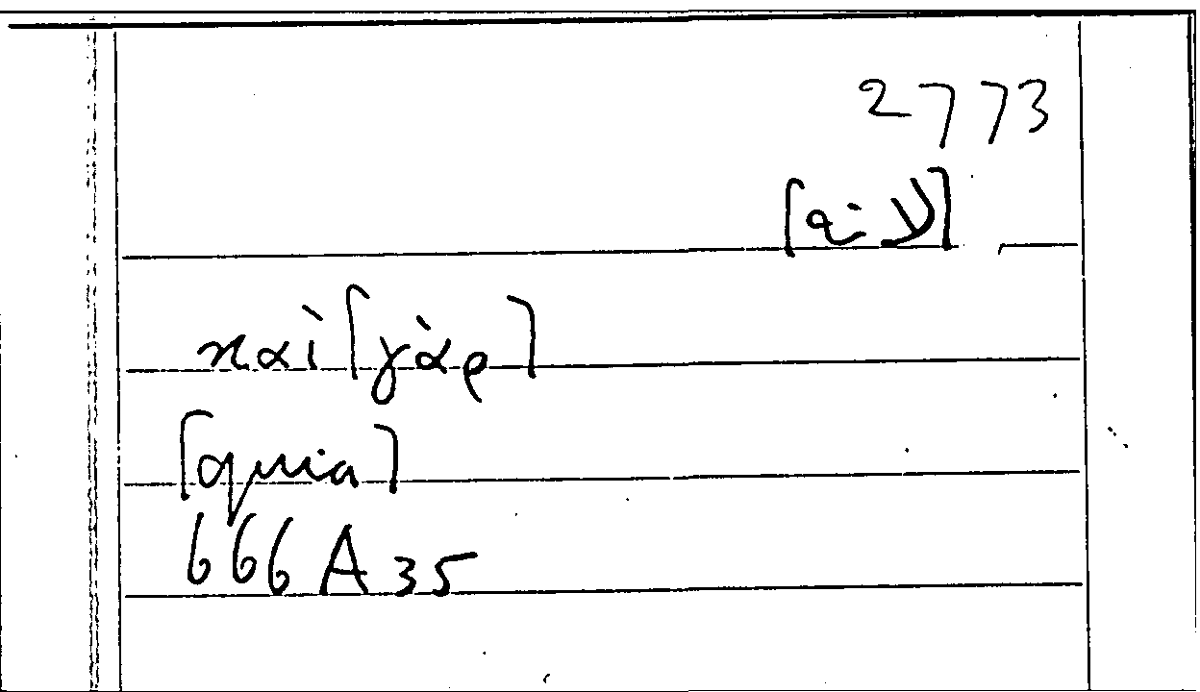 2773
[لانه]
καὶ [γὰρ]
[quia]
666 A 35